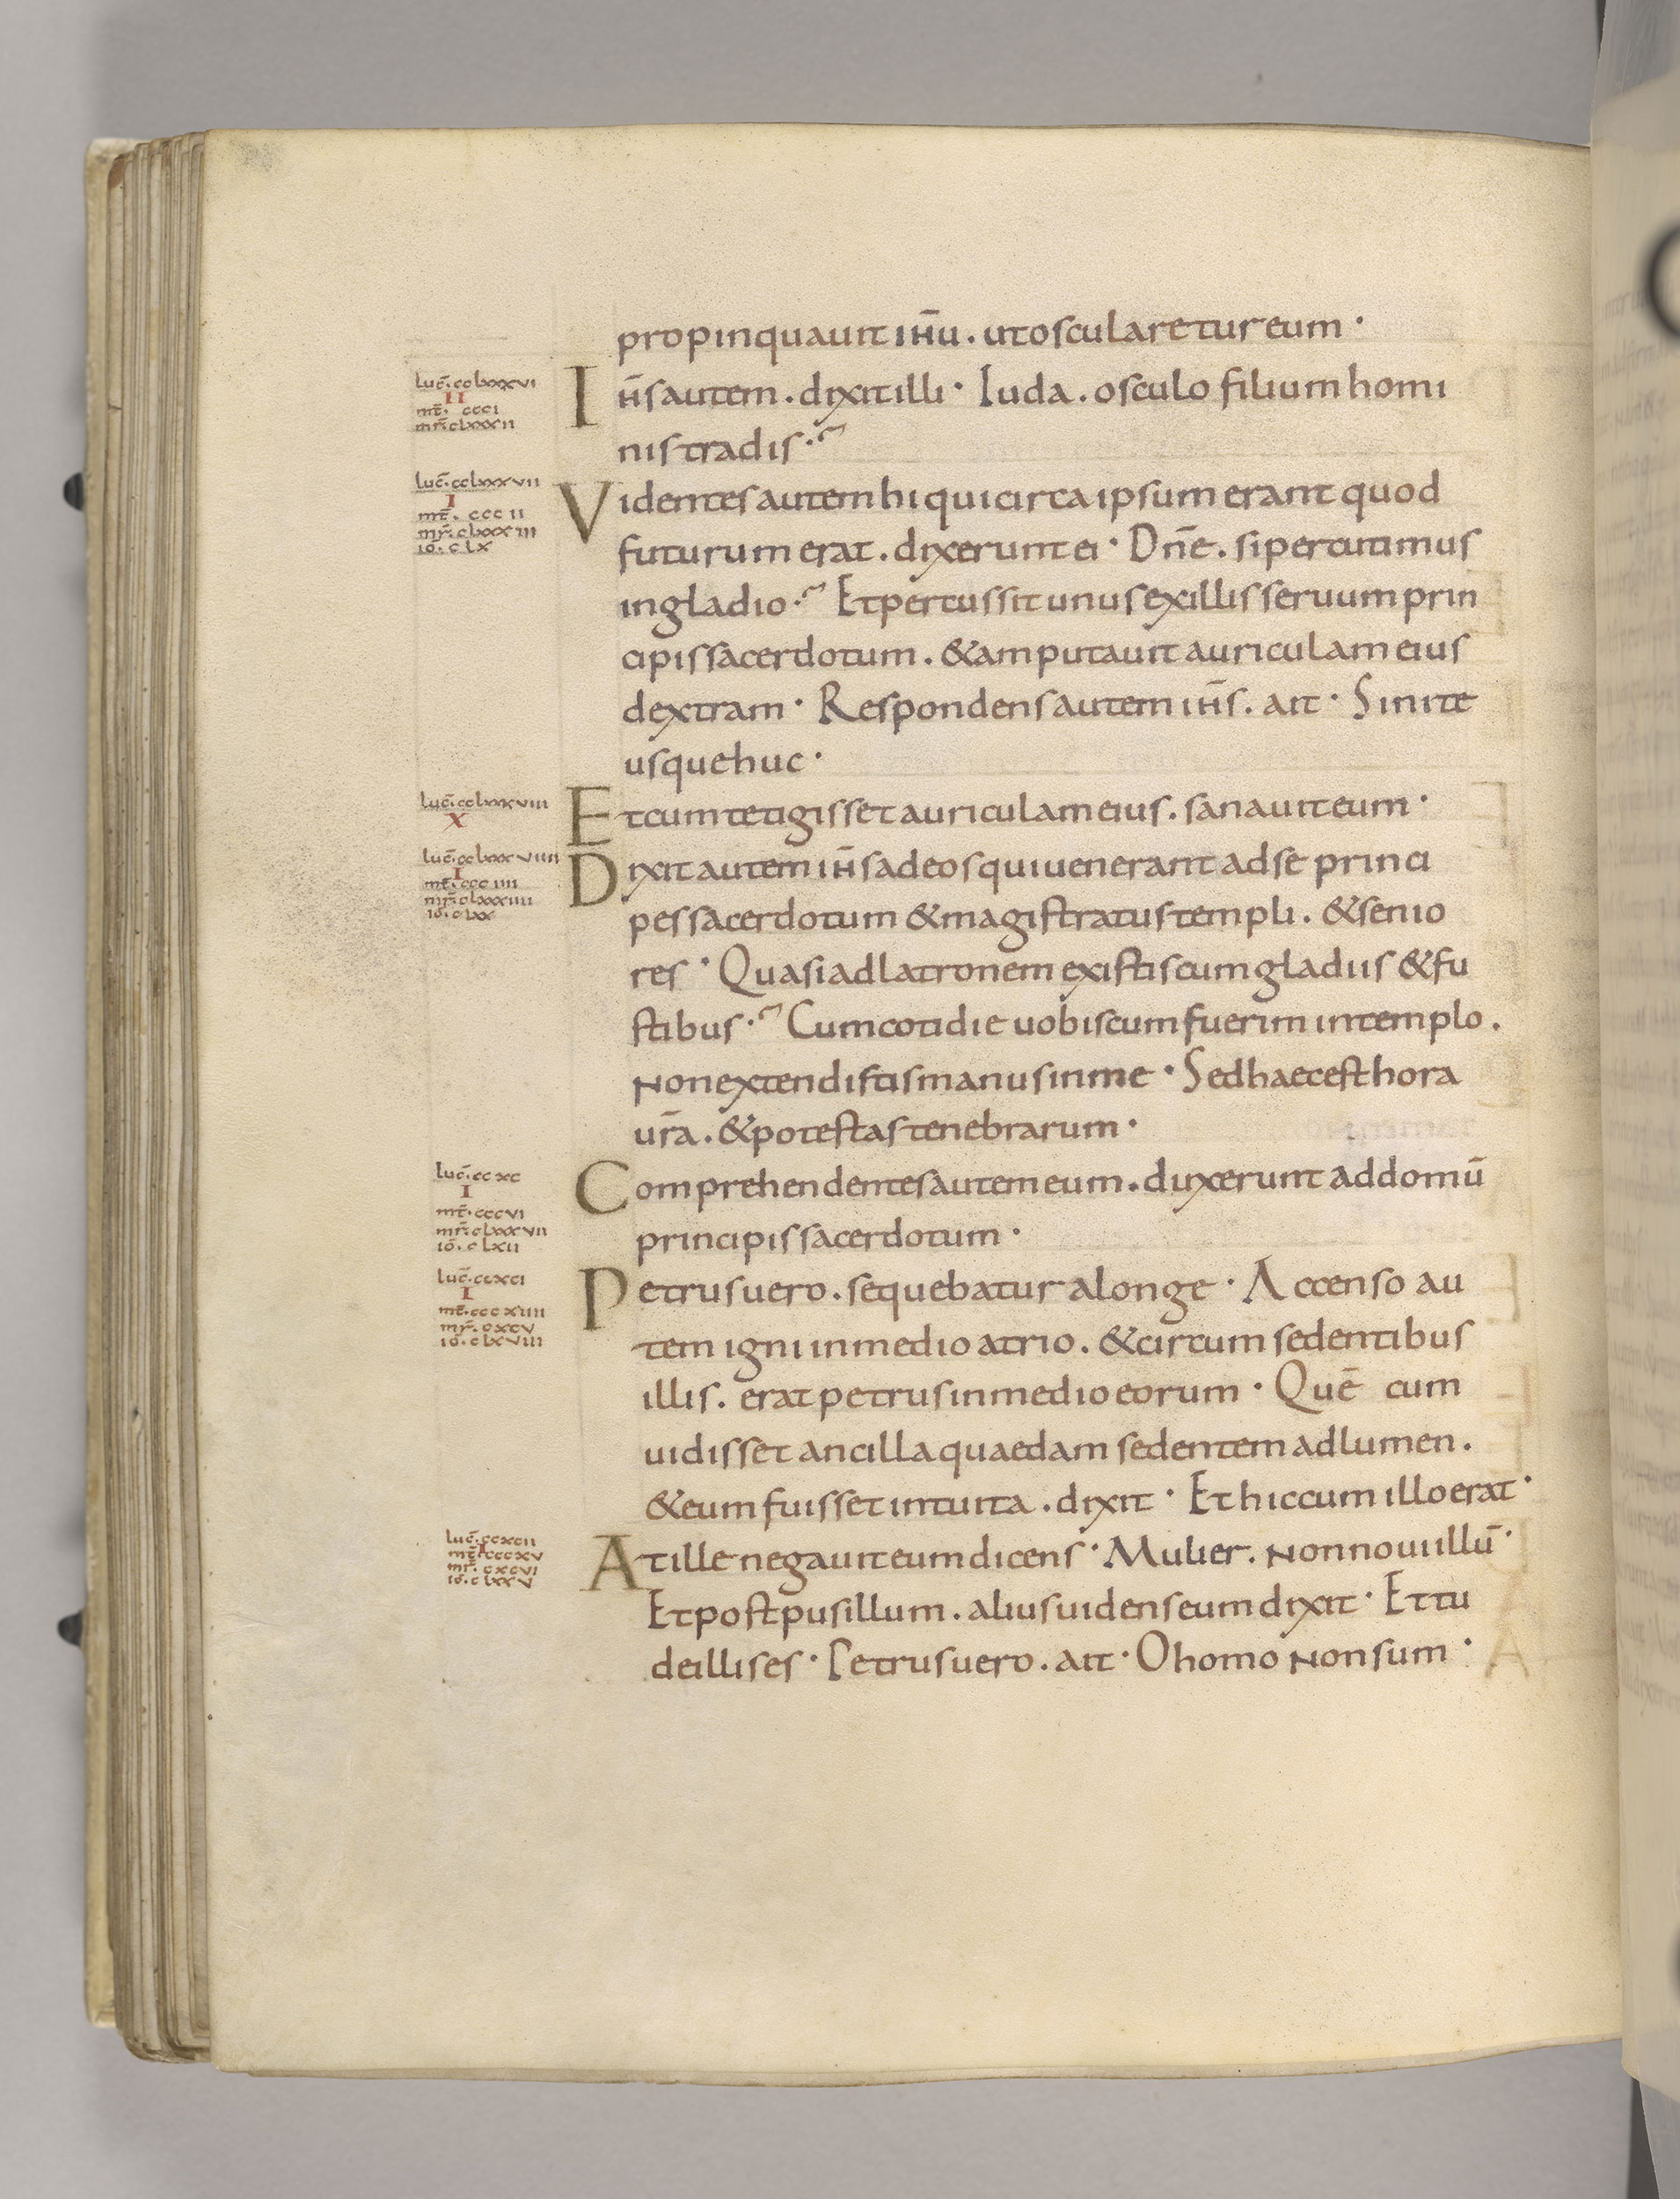 propinquauit ih̄u. ut oscularetur eum·
luc̄. cclxxxvi
II
mt̄. ccci
mr̄. clxxxii
Ih̄s autem. dixit illi· Iuda. osculo filium homi
nis tradis·
luc̄. cclxxxvii
I
mt̄. cccii
mr̄. clxxxiii
iō. clx
Videntes autem hi qui circa ipsum erant quod
futurum erat. dixerunt ei· Dn̄e. si percutimus
in gladio· Et percussit unus ex illis seruum prin
cipis sacerdotum. & amputauit auriculam eius
dextram· Respondens autem ih̄s. ait· Sinite
usque huc·
luc̄. cclxxxviii
X
Et cum tetigisset auriculam eius. sanauit eum·
luc̄. cclxxxviiii
I
mt̄. ccciiii
mr̄. clxxxiiii
iō. clxx
Dixit autem ih̄s ad eos qui uenerant ad se princi
pes sacerdotum & magistratus templi. & senio
res· Quasi ad latronem existis cum gladiis & fu
stibus· Cum cotidie uobiscum fuerim in templo.
Non extendistis manus in me· Sed haec est hora
ur̄a. & potestas tenebrarum·
luc̄. ccxc
I
mt̄. cccvi
mr̄. clxxxvii
iō. clxii
Comprehendentes autem eum. duxerunt ad domū
principis sacerdotum·
luc̄. ccxci
I
mt̄. cccxiiii
mr̄. cxcv
iō. clxviii
Petrus uero. sequebatur a longe· Accenso au
tem igni in medio atrio. & circum sedentibus
illis. erat petrus in medio eorum· Quē cum
uidisset ancilla quaedam sedentem ad lumen.
& eum fuisset intuita. dixit· Et hic cum illo erat·
luc̄. ccxcii
I
mt̄. cccxv
mr̄. cxcvi
iō. clxxv
At ille negauit eum dicens· Mulier. Non noui illū·
Et post pusillum. alius uidens eum dixit· Et tu
de illis es· Petrus uero. ait· O homo Non sum·